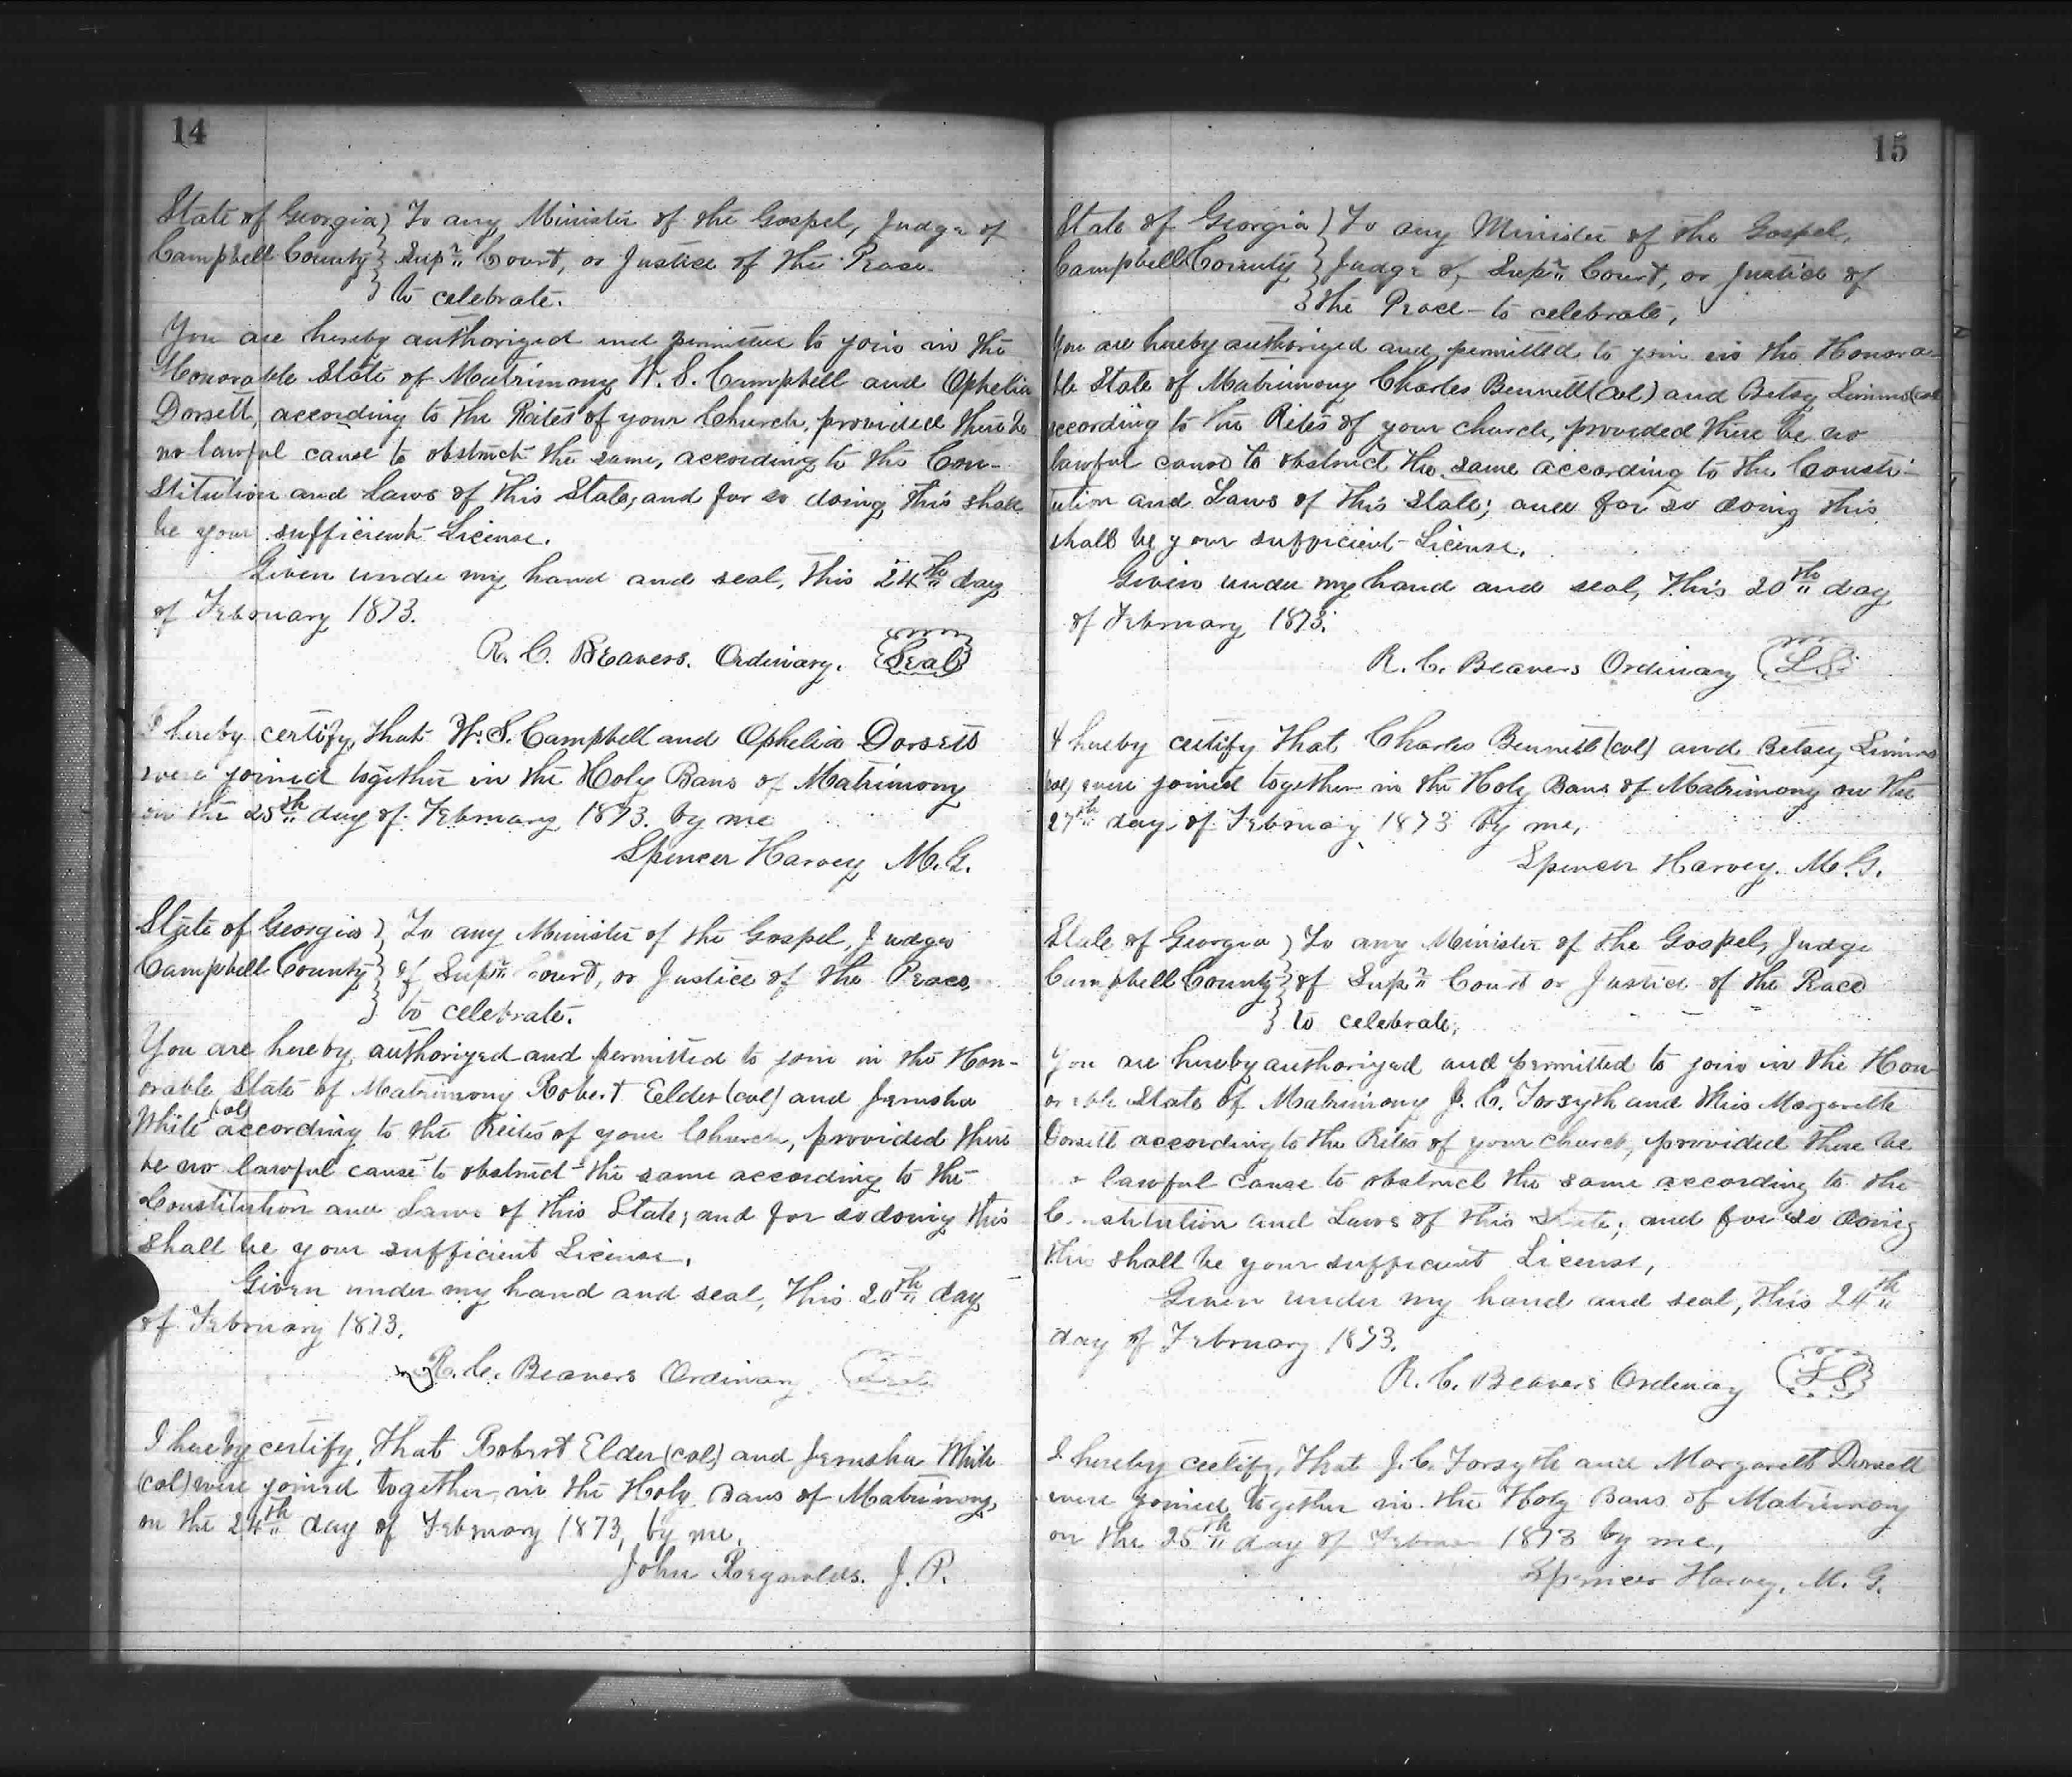 14
State of Georgia } To any Minister of the Gospel, Judge of
Campbell County } Supr. Court, or Justice of the Peace
} to celebrate.
You are hereby authorized and permitted to join in the
Honorable State of Matrimony W. S. Campbell and Ophelia
Dorsett, according to the Rites of your Church, provided there be
no lawful cause to obstruct the same, according to the Con-
stitution and Laws of this State, and for so doing this shall
be your sufficient License.
Given under my hand and seal, this 24th day
of February 1873.
R. C. Beavers. Ordinary. Seal
I hereby certify, that W. S. Campbell and Ophelia Dorsett
were joined together in the Holy Bans of Matrimony
on the 25th day of February 1873. by me
Spencer Harvey, M. G.
State of Georgia } To any Minister of the Gospel, Judge
Campbell County } of Supr. Court, or Justice of the Peace
} to celebrate.
You are hereby authorized and permitted to join in the Hon-
orable State of Matrimony Robert Elder (col) and Jerusha
White (col) according to the Rites of your Church, provided there
be no lawful cause to obstruct the same according to the
Constitution and Laws of this State; and for so doing this
shall be your sufficient License.
Given under my hand and seal, this 20th day
of February 1873.
R. C. Beavers Ordinary
I hereby certify, that Robert Elder (col) and Jerusha White
(col) were joined together in the Holy Bans of Matrimony,
on the 24th day of February 1873, by me.
John Reynolds. J. P.
15
State of Georgia } To any Minister of the Gospel,
Campbell County } Judge of Supr. Court, or Justice of
} the Peace - to celebrate,
You are hereby authorized and permitted to join in the Honora-
ble State of Matrimony Charles Bennett (col) and Betsy Simms (col
according to the Rites of your church, provided there be no
lawful cause to obstruct the same according to the Consti-
tution and Laws of this State; and for so doing this
shall be your sufficient License.
Given under my hand and seal, this 20th day
of February 1873.
R. C. Beavers Ordinary L S
I hereby certify that Charles Bennett (col) and Betsey Simms
(col) were joined together in the Holy Bans of Matrimony on the
27th day of February 1873 by me,
Spencer Harvey. M. G.
State of Georgia } To any Minister of the Gospel, Judge
Campbell County } of Supr. Court or Justice of the Peace
} to celebrate,
You are hereby authorized and permitted to join in the Hon
orable State of Matrimony J. C. Forsyth and Miss Margarette
Dorsett according to the Rites of your church, provided there be
lawful cause to obstruct the same according to the
Constitution and Laws of this State; and for so doing
this shall be your sufficient License,
Given under my hand and seal, this 24th
day of February 1873.
R. C. Beavers Ordinary L S
I hereby certify, that J. C. Forsyth and Margarett Dorsett
were joined together in the Holy Bans of Matrimony
on the 25th day of 1873 by me,
Spencer Harvey, M. G.